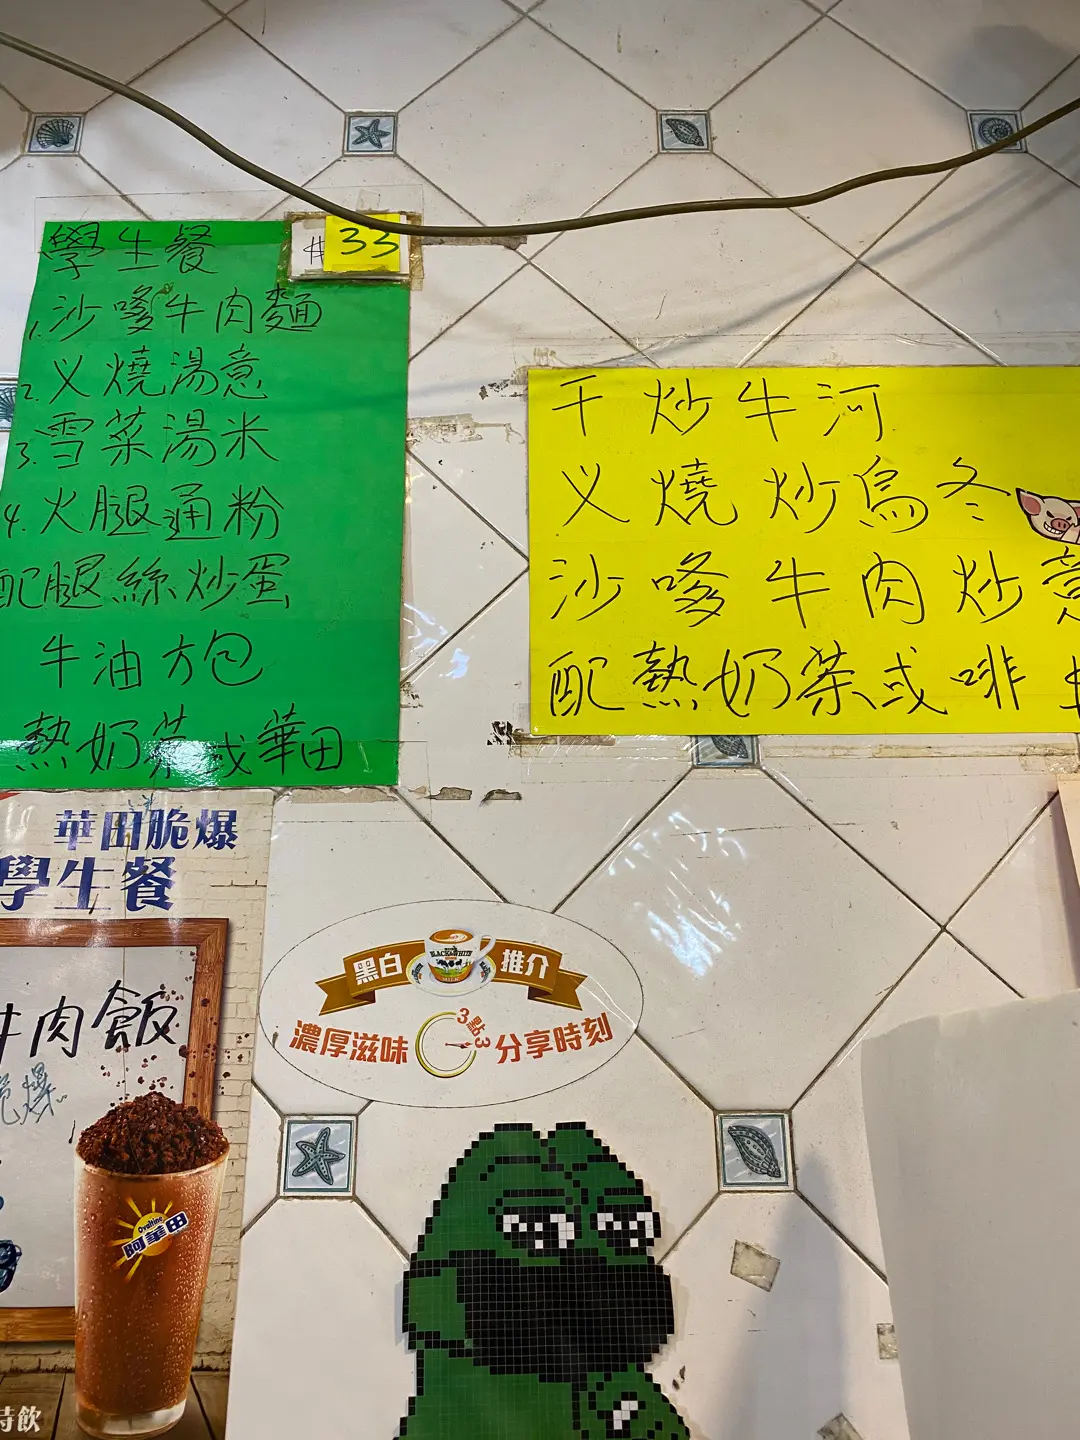 學生餐
#33
1. 沙嗲牛肉麵
2. 义燒湯意
3. 雪菜湯米
4. 火腿通粉
配腿絲炒蛋
牛油方包
熱奶茶或華田
干炒牛河
义燒炒烏冬
沙嗲牛肉炒意
配熱奶茶或啡
華田脆爆
學生餐
牛肉飯
脆爆
Ovaltine
阿華田
時飲
黑白
BLACK&WHITE
推介
濃厚滋味
3點3
分享時刻